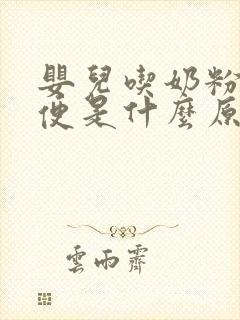 嬰兒喫奶粉
便是什麼原
雲雨霽